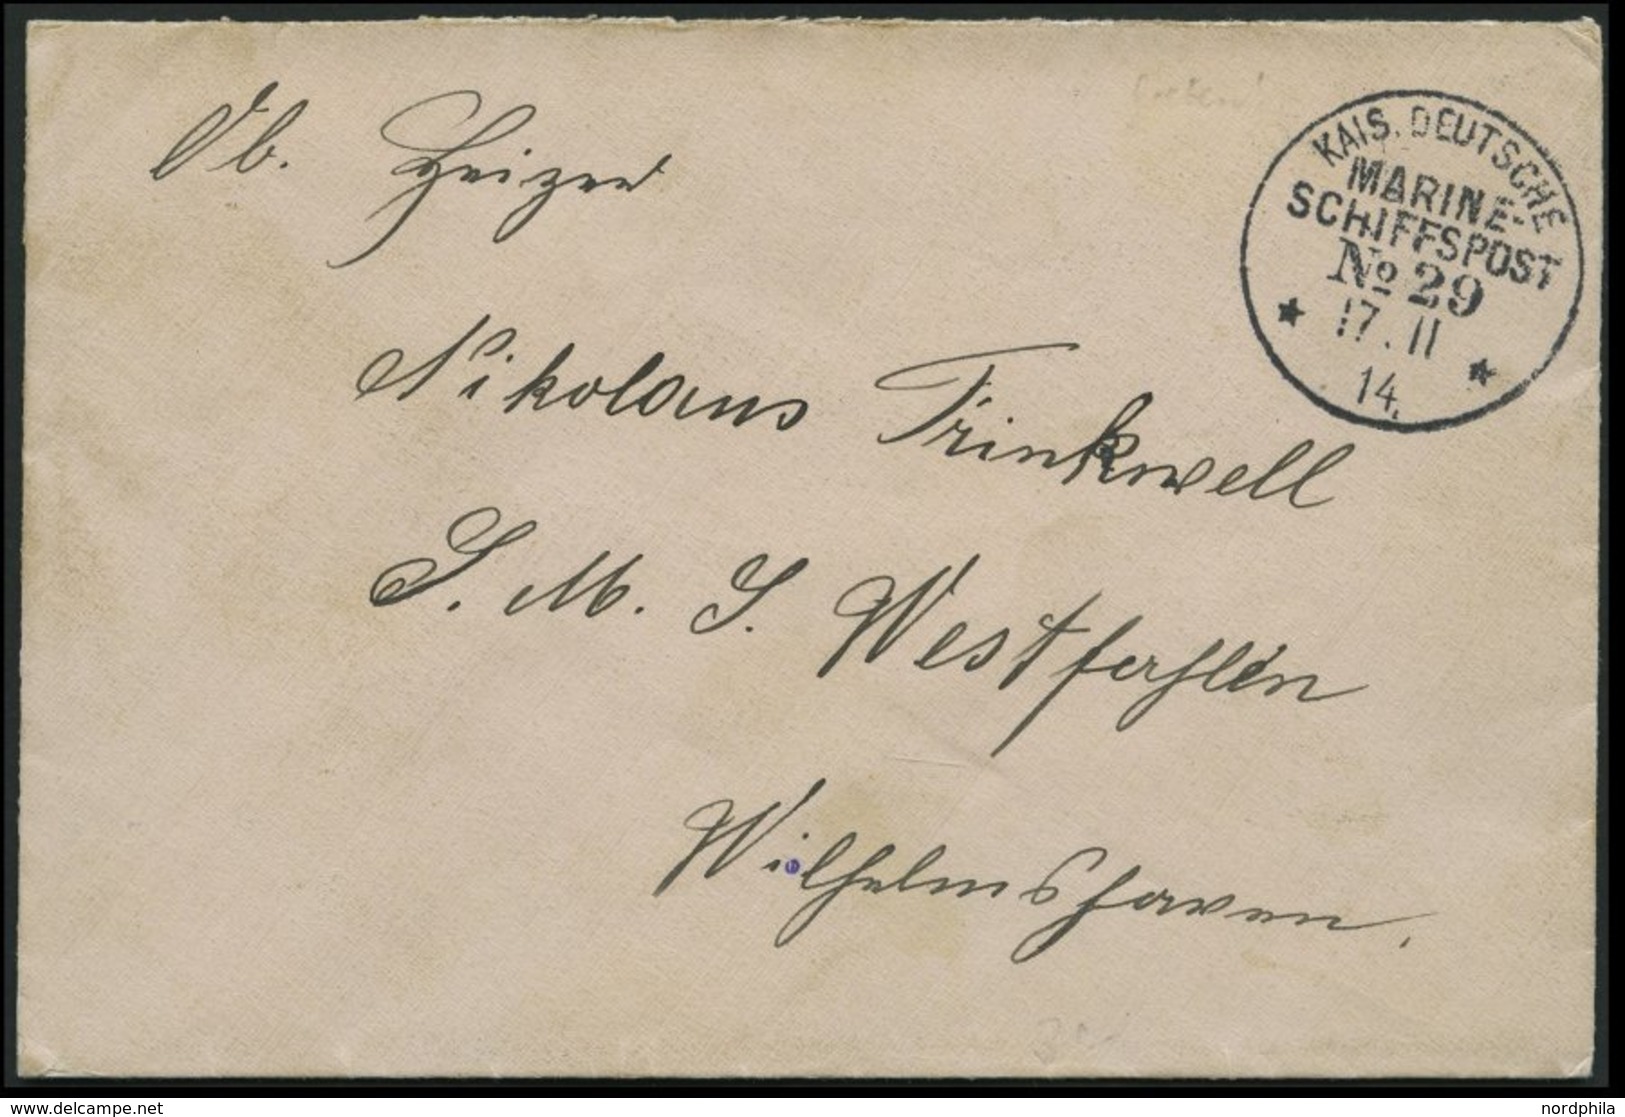 Ob. Heizer
KAIS. DEUTSCHE
MARINE-
SCHIFFSPOST
No 29
17.11
14.
Nikolaus Trinkwell
S. M. S. Westfahlen
Wilhelmshaven.
© delcampe.net
nordphila